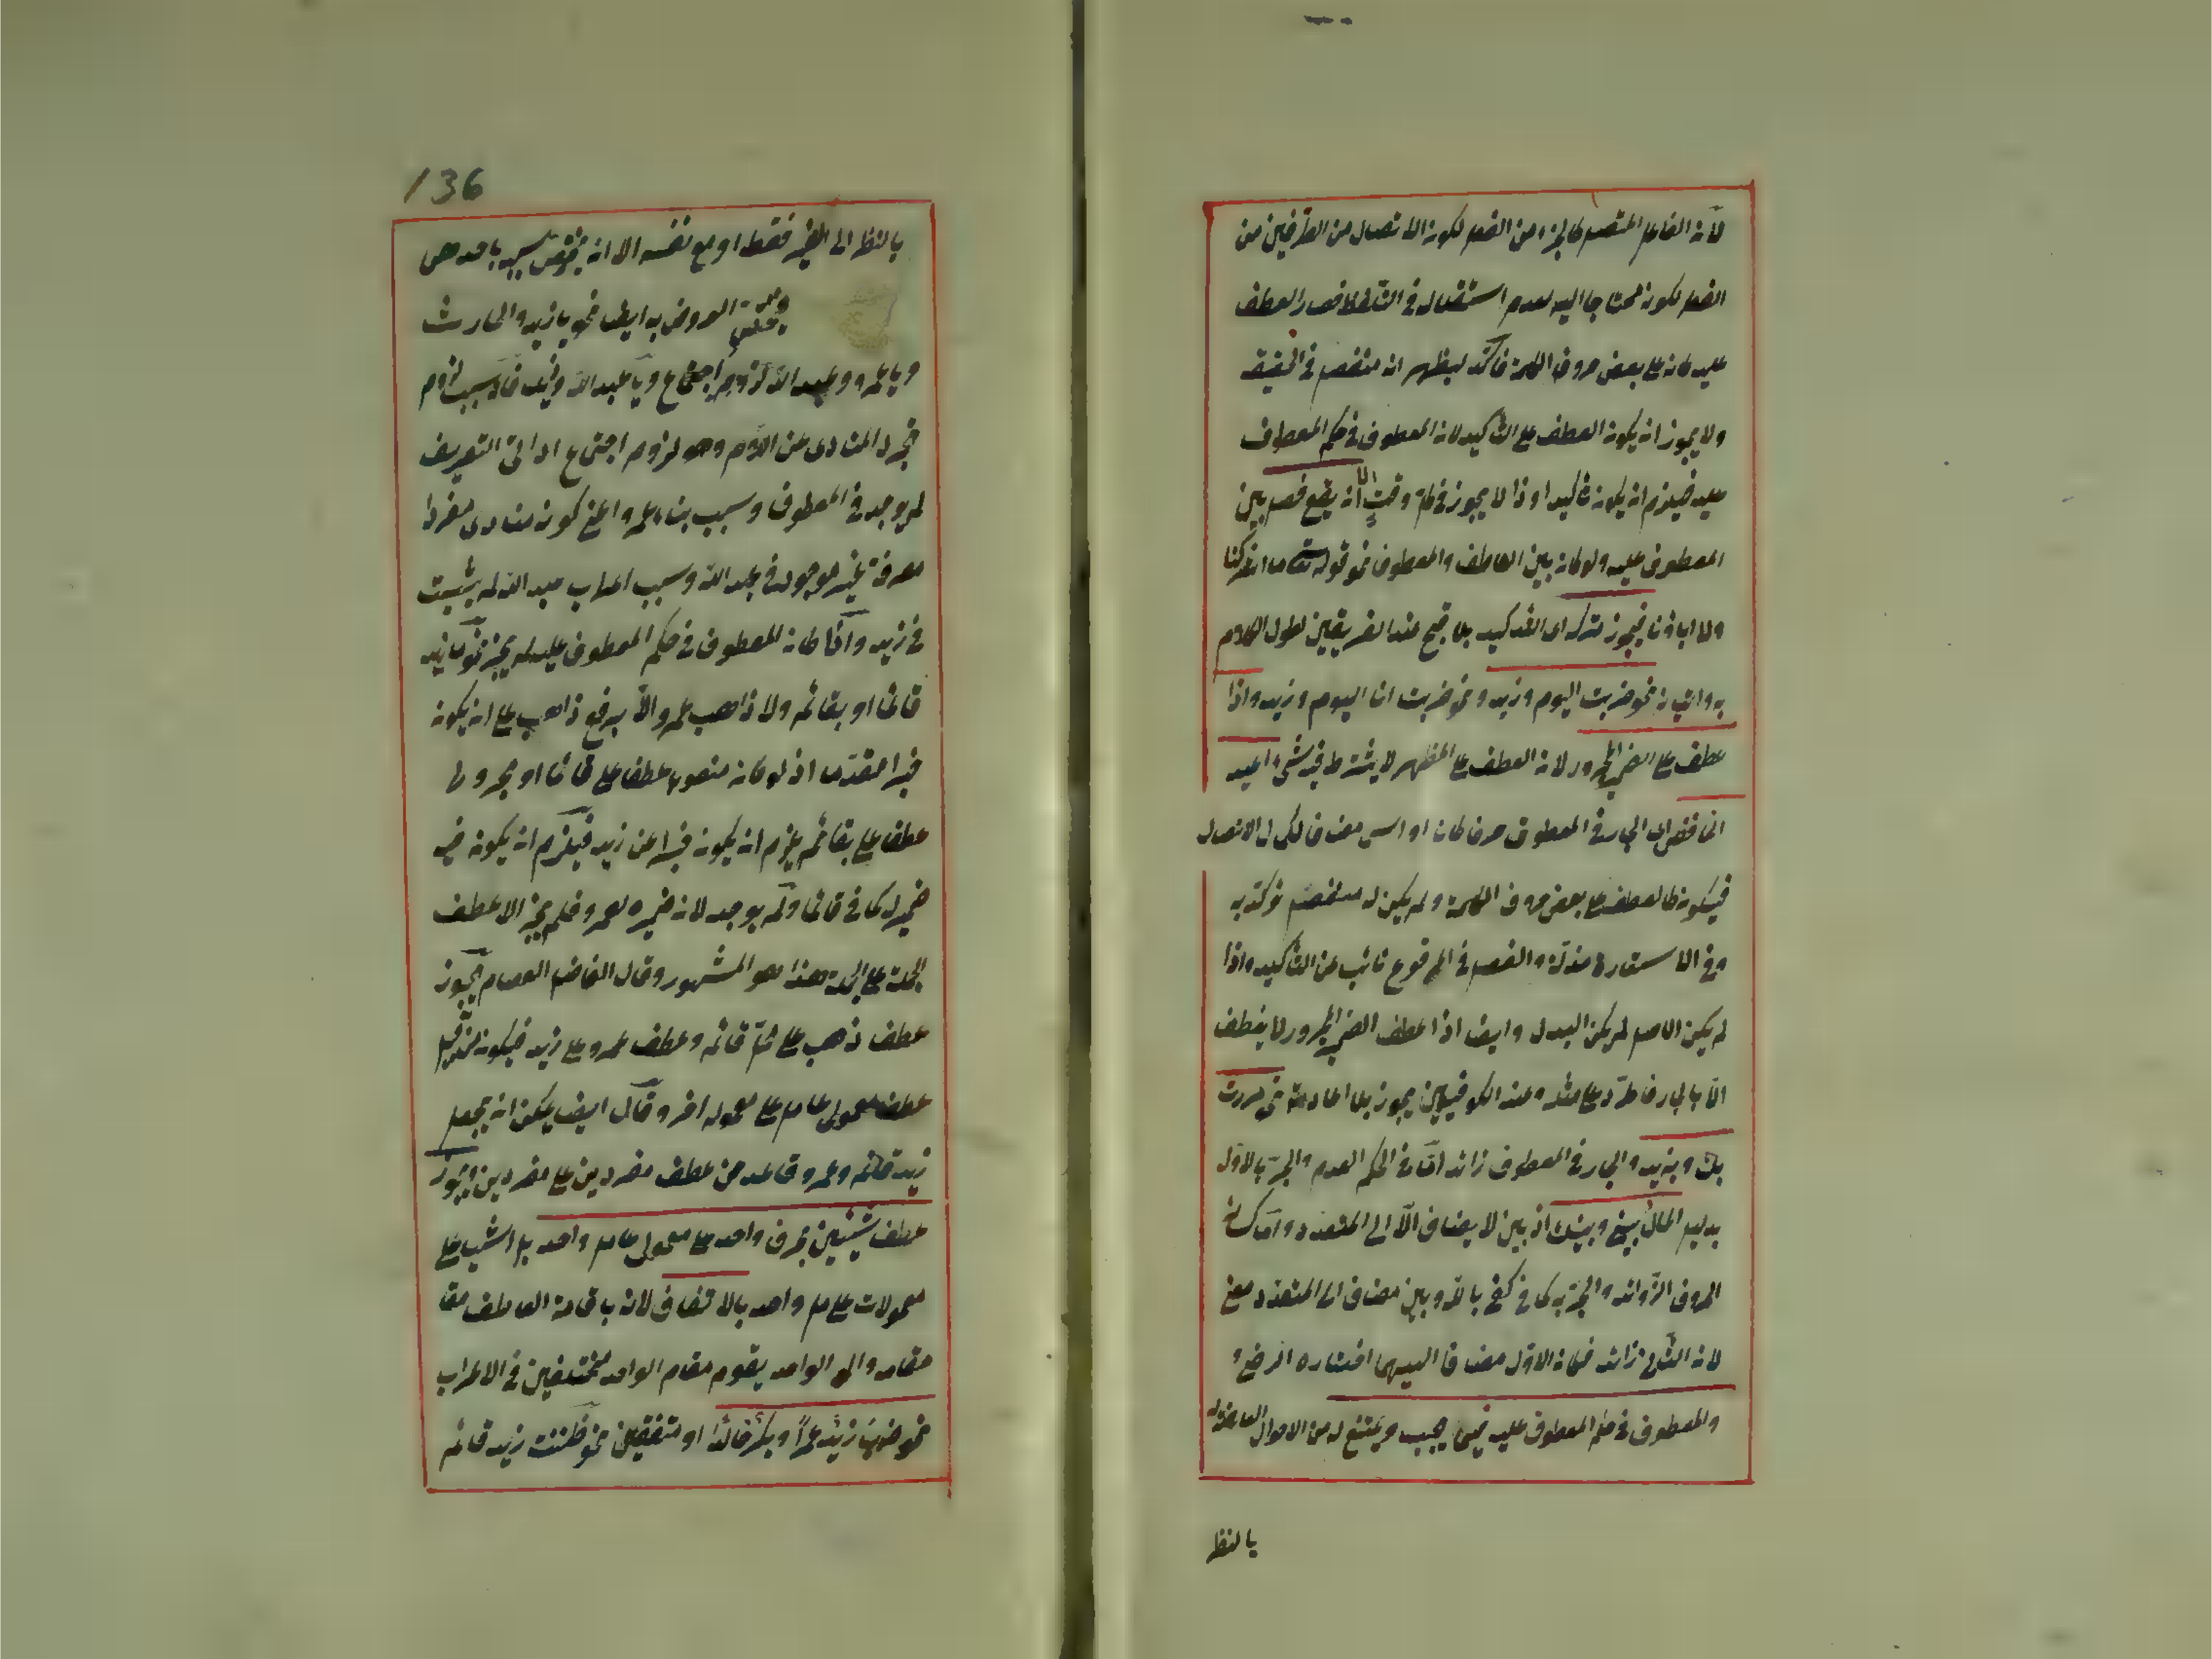 لأن الفاعل المتصل كالجزء من الفعل لكون الاتصال من الطرفين من
الفعل لكونه محتاجا اليه لعدم استقلاله في التلفظ فصار العطف
عليه كانه على بعض حروف الكلمة فاكد ليظهر انه منفصل في الحقيقة
ولا يجوز ان يكون العطف على التأكيد لان المعطوف في حكم المعطوف
عليه فيلزم ان يكون تأكيدا وذا لا يجوز في كل وقت الا ان يقع فصل بين
المعطوف عليه ولو كان بين العاطف والمعطوف نحو قوله تعالى ما اشركنا
ولا اباؤنا فيجوز تركه اى التأكيد بلا قبح عند الفريقين لطول الكلام
به واتيانه نحو ضربت اليوم وزيد ونحو ضربت انا اليوم وزيد واذا
عطف على الضمير المجرور لان العطف على المظهر لا يشترط فيه شئ اعيد
الخافض اى الجار في المعطوف حرفا كان او اسما مضافا لكمال الاتصال
فيكون كالعطف على بعض حروف الكلمة ولم يكن له منفصل نؤكد به
وفي الاستعارة مذلة والفصل في المرفوع نائب عن التأكيد واذا
لم يكن الاصل لم يكن البدل وايضا اذا عطف الضمير المجرور لا يعطف
الا بالجار فاطرد على مثله وعند الكوفيين يجوز بلا اعادة نحو مررت
بك وبزيد والجار في المعطوف زائد اذا في الحكم العدم والجر بالاول
بدليل المال بينى وبينك اذ بين لا يضاف الا الى المتعدد واما كسائر
الحروف الزوائد والجر به كما في كفى بالله وبين مضاف الى المتعدد معنى
لان الثانى زائد فكان الاول مضافا اليهما اختاره الرضى
والمعطوف في حكم المعطوف عليه فيما يجب ويمتنع له من الاحوال العارضة له
بالنظر
136
بالنظر الى الغير فقط او مع نفسه الا انه يختص سببه باحدهن
ويختص العروض به ايضا نحو يا زيد والحارث
ويا عمرو وعبد الله لزوم اجتماع ويا عبد الله وزيد فان سبب لزوم
تجرد المنادى عن اللام وهو لزوم اجتماع اداتى التعريف
لم يوجد في المعطوف وسبب بناء عمرو اعنى كونه منادى مفردا
معرفة غير موجود في عبد الله وسبب اعراب عبد الله لم يثبت
في زيد واذا كان المعطوف في حكم المعطوف عليه لم يجز نحو ما زيد
قائما او بقائم ولا ذاهب عمرو الا برفع ذاهب على ان يكون
خبرا مقدما اذ لو كان منصوبا عطفا على قائما او مجرورا
عطفا على بقائم يلزم ان يكون خبرا عن زيد فيلزم ان يكون فيه
ضمير له كما في قائما ولم يوجد لان ضميره لعمرو فلم يجز الا عطف
الجملة على الجملة هذا هو المشهور وقال الفاضل العصام يجوز
عطف ذاهب على محل قائم وعطف عمرو على زيد فيكون من قبيل
عطف معمولى عامل على معموله اخر وقال ايضا يمكن ان يجعل
زيد قائم وعمرو قاعد من عطف مفردين على مفردين ويجوز
عطف شيئين بحرف واحد على معمولى عامل واحد بل اشياء على
معمولات عامل واحد بالاتفاق لان باقامة العاطف مقا
مقامه والى الواحد يقوم مقام الواحد مختلفين في الاعراب
نحو ضرب زيد عمرا وبكر خالدا او متفقين نحو ظننت زيد قائم